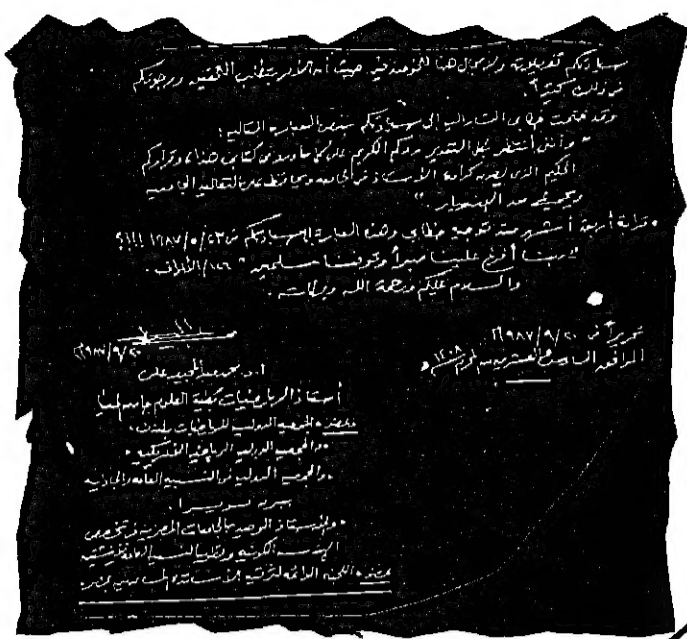 سيادتكم تفصيلاته ولا مجال هنا للخوض فيها حيث أن الأمر يتطلب التحقيق ورجوتكم
في ذلك كثيراً.
وقد ختمت خطابي المشار إليه إلى سيادتكم بنص العبارة التالية:
" وأنني أنتظر بكل التقدير ردكم الكريم على كل ما ورد في كتابي هذا، وقراركم
الحكيم الذي يصون كرامة الأستاذ في الجامعة ويحافظ على التقاليد الجامعية
ويحميها من الانهيار ."
• قرابة أربعة أشهر منذ توجيه خطابي وهذه العبارة إلى سيادتكم في ٢٣/٥/١٩٨٧ !!!؟
" ربنا أفرغ علينا صبراً وتوفنا مسلمين " ١٢٦/الأعراف .
والسلام عليكم ورحمة الله وبركاته .
تحريراً في ٢٠/٩/١٩٨٧م
الموافق السابع والعشرين من محرم ١٤٠٨هـ
٢٠/٩/١٩٨٧م
أ.د. محمد عبد المجيد على
أستاذ الرياضيات بكلية العلوم جامعة المنيا
وعضو • الجمعية الدولية للرياضيات بلندن.
• والجمعية الدولية الرياضية الأمريكية •
• والجمعية الدولية في النسبية العامة والجاذبية
سويسرا .
• والأستاذ الوحيد بالجامعات المصرية في تخصص
الهندسة الكونية ونظريا النسبية العامة
عضو • اللجنة الدائمة لترقية الأساتذة المساعدين بمصر.